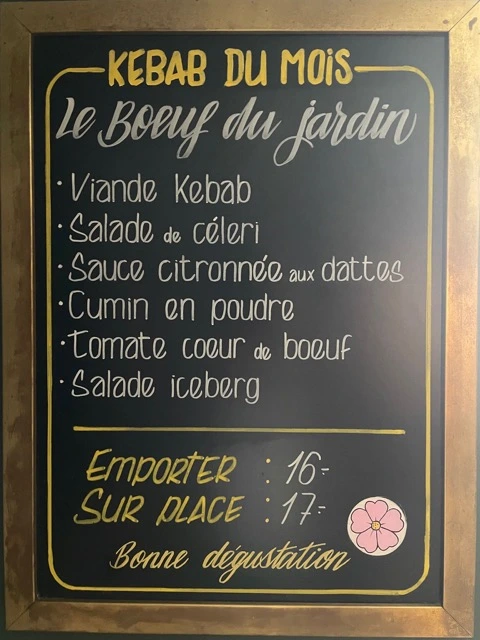 KEBAB DU MOIS
Le Boeuf du jardin
· Viande Kebab
· Salade de céleri
· Sauce citronnée aux dattes
· Cumin en poudre
· Tomate coeur de boeuf
· Salade iceberg
EMPORTER : 16.-
SUR PLACE : 17.-
Bonne dégustation